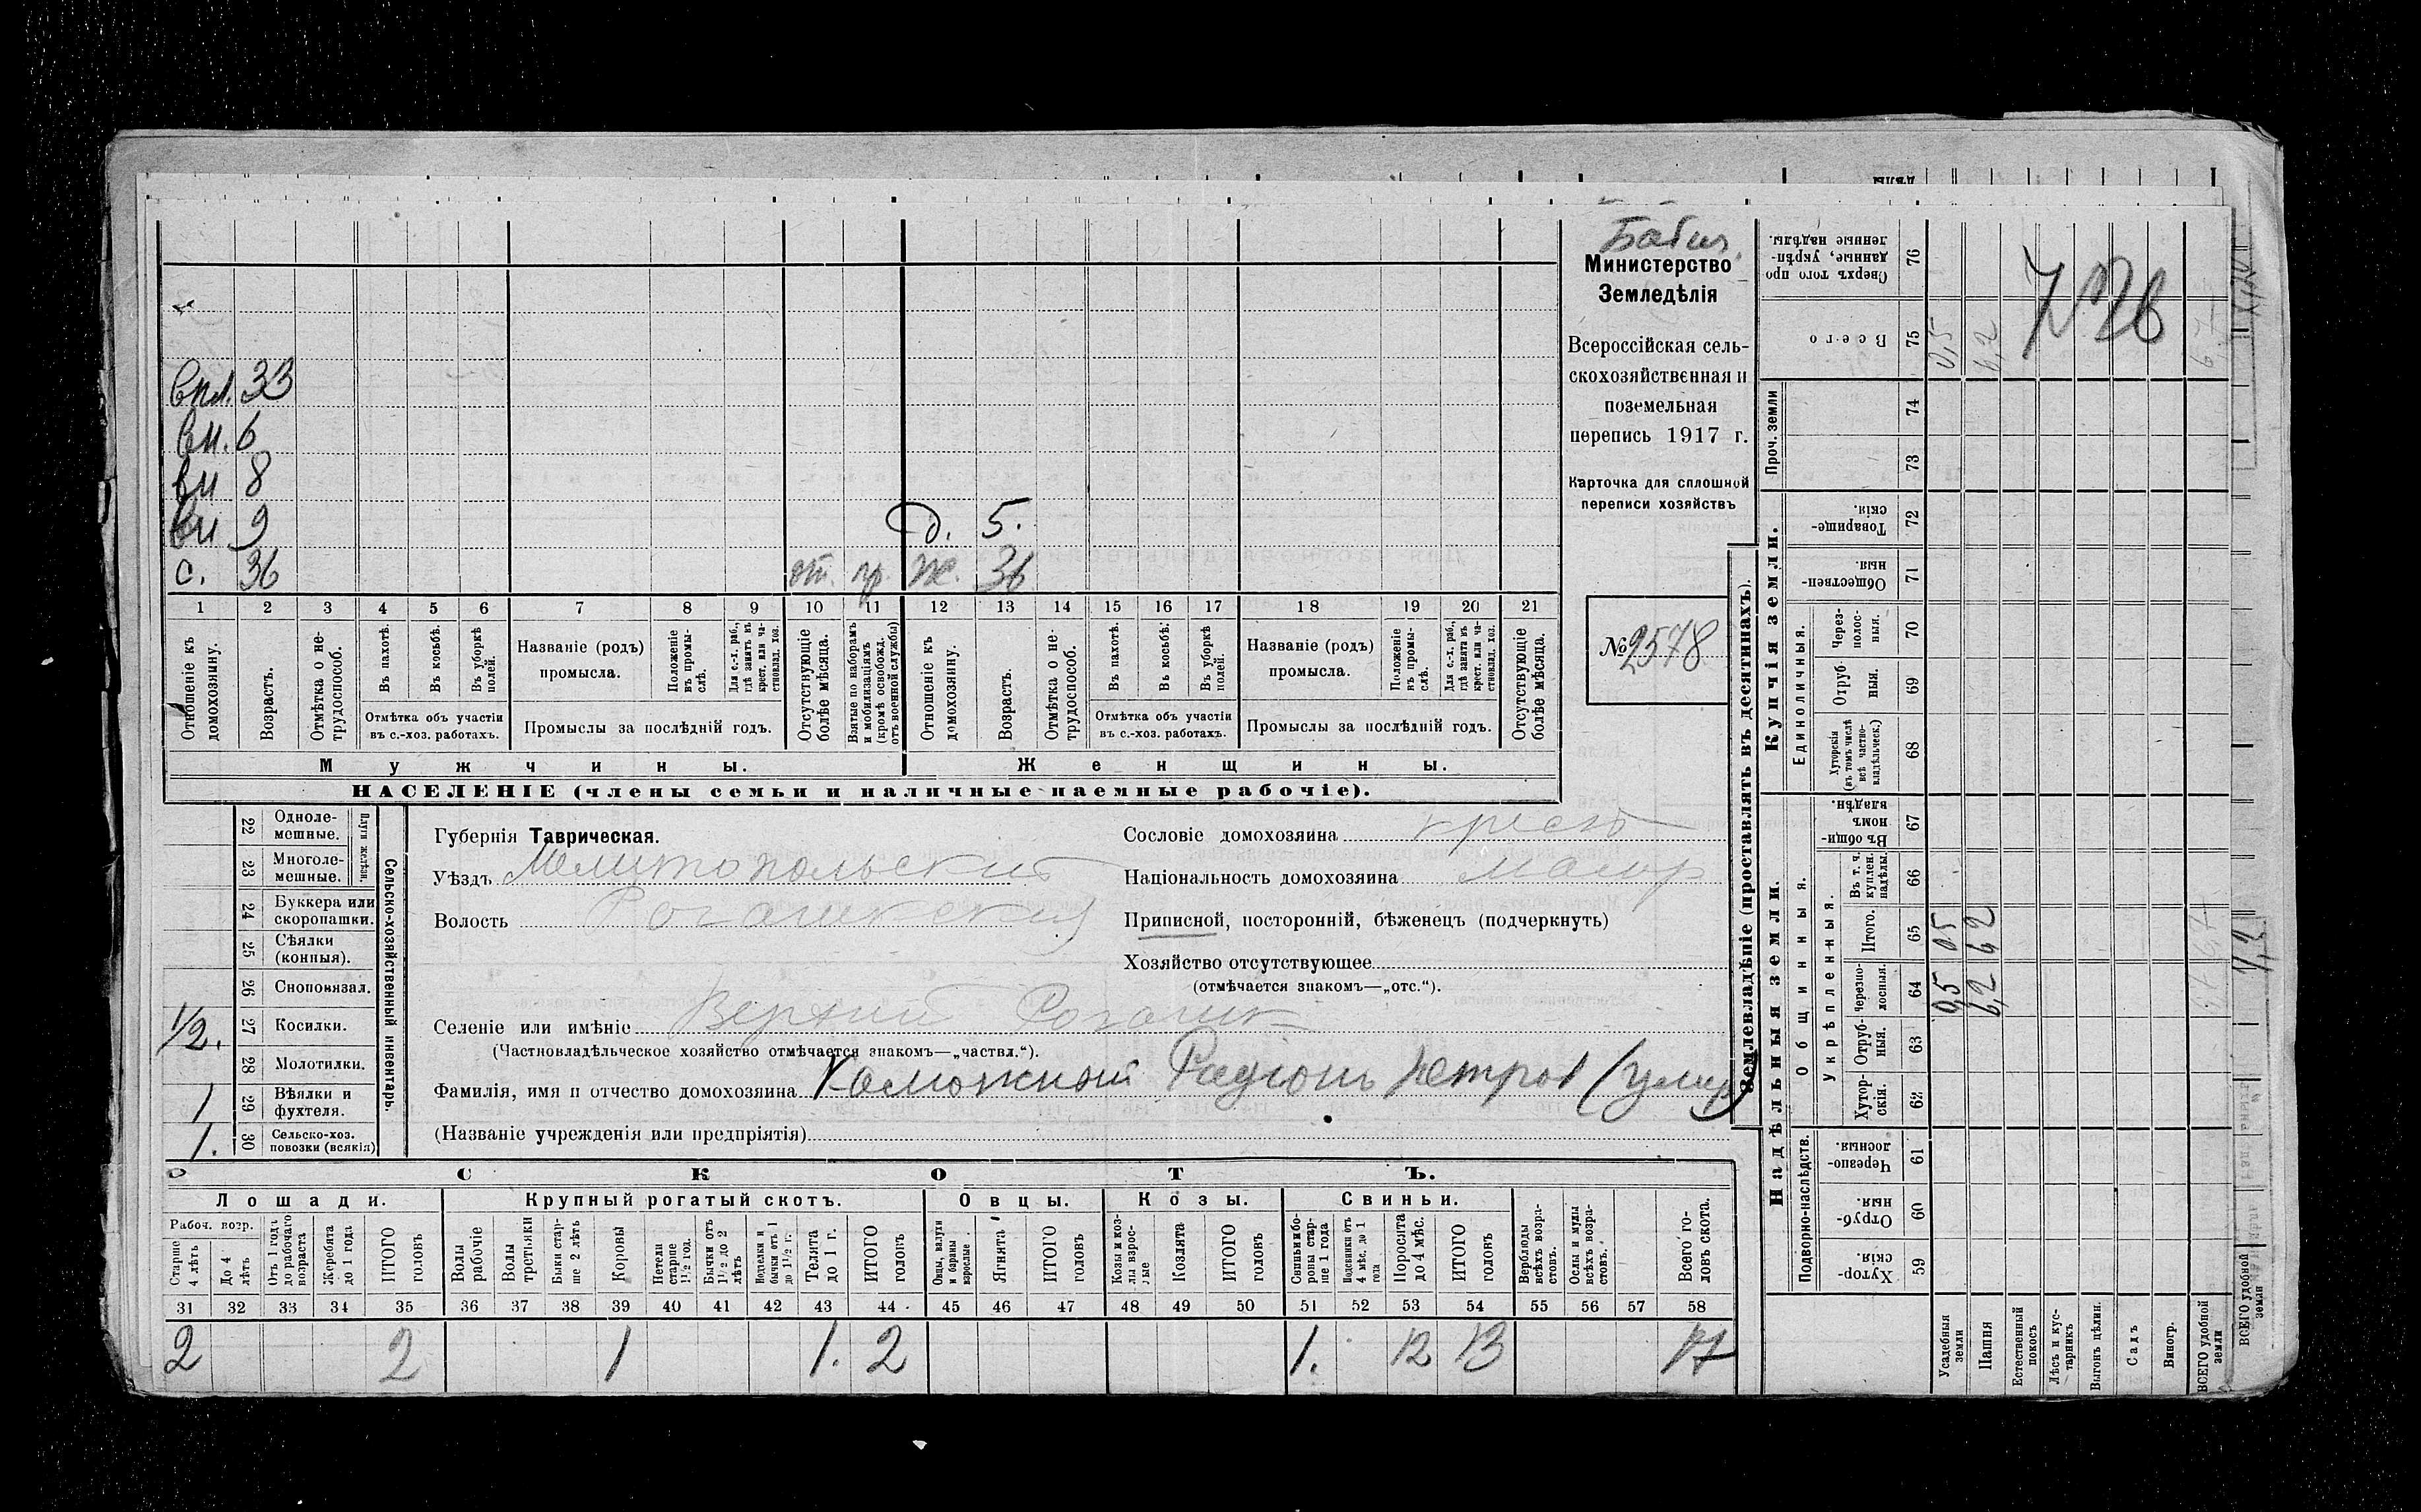 Министерство
Земледѣлія
Всероссійская сель-
скохозяйственная и
поземельная
перепись 1917 г.
Карточка для сплошной
переписи хозяйствъ
№ 2578
33
вн. 6
вн 8
вн 9 д. 5.
с. 36 от. гр. ж. 36
1 2 3 4 5 6 7 8 9 10 11 12 13 14 15 16 17 18 19 20 21
Отношеніе къ домохозяину.
Возрастъ.
Отмѣтка о не-трудоспособ.
Въ пахотѣ.
Въ косьбѣ.
Въ уборкѣ полей.
Отмѣтка объ участіи
въ с.-хоз. работахъ.
Названіе (родъ)
промысла.
Положеніе въ промы-слѣ.
Для с.-х. раб., гдѣ занятъ въ крест. или ча-стновлад. хоз.
Промыслы за послѣдній годъ.
Отсутствующіе болѣе мѣсяца.
Взятые по наборамъ и мобилизаціямъ (кромѣ освобожд. отъ военной службы)
Отношеніе къ домохозяину.
Возрастъ.
Отмѣтка о не-трудоспособ.
Въ пахотѣ.
Въ косьбѣ.
Въ уборкѣ полей.
Отмѣтка объ участіи
въ с.-хоз. работахъ.
Названіе (родъ)
промысла.
Положеніе въ промы-слѣ.
Для с.-х. раб., гдѣ занята въ крест. или ча-стновлад. хоз.
Промыслы за послѣдній годъ.
Отсутствующіе болѣе мѣсяца.
Мужчины. Женщины.
НАСЕЛЕНІЕ (члены семьи и наличные наемные рабочіе).
Сельско-хозяйственный инвентарь.
Плуги желѣзн.
22 Одноле-мешные.
23 Многоле-мешные.
24 Буккера или скоропашки.
25 Сѣялки (конныя).
26 Сноповязал.
1/2. 27 Косилки.
28 Молотилки.
1 29 Вѣялки и фухтеля.
1. 30 Сельско-хоз. повозки (всякія)
Губернія Таврическая.
Уѣздъ Мелитопольский
Волость Рогачикская
Селеніе или имѣніе Верхний Рогачик
(Частновладѣльческое хозяйство отмѣчается знакомъ—„частвл.“).
Фамилія, имя и отчество домохозяина Родіонъ Петров (умер)
(Названіе учрежденія или предпріятія)
Сословіе домохозяина крест
Національность домохозяина малор
Приписной, посторонній, бѣженецъ (подчеркнуть)
Хозяйство отсутствующее
(отмѣчается знакомъ—„отс.“).
СКОТЪ.
Лошади. Крупный рогатый скотъ. Овцы. Козы. Свиньи.
Рабоч. возр.
Старше 4 лѣтъ
До 4 лѣтъ
Отъ 1 года до рабочаго возраста
Жеребята до 1 года
ИТОГО головъ
Волы рабочіе
Волы третьяки
Быки стар-ше 2 лѣтъ
Коровы
Нетели старше 1½ год.
Бычки отъ 1½ до 2 лѣтъ
Подтелки и бычки отъ 1 до 1½ г.
Телята до 1 г.
ИТОГО головъ
Овцы, валухи и бараны взрослые
Ягнята
ИТОГО головъ
Козы и коз-лы взрос-лые
Козлята
ИТОГО головъ
Свиньи бо-ровы стар-ше 1 года
Подсвинки отъ 4 мѣс. до 1 года
Поросята до 4 мѣс.
ИТОГО головъ
Верблюды всѣхъ возра-стовъ.
Ослы и мулы всѣхъ возра-стовъ.
Всего го-ловъ скота.
31 32 33 34 35 36 37 38 39 40 41 42 43 44 45 46 47 48 49 50 51 52 53 54 55 56 57 58
2 2 1 1. 2 1. 12 13 17
Землевладѣніе (проставлять въ десятинахъ).
Надѣльныя земли. Купчія земли. Проч. земли
Подворно-наслѣдств.
Общинныя.
Укрѣпленныя.
Единоличныя.
Хутор-скія 59
Отруб-ныя 60
Черезпо-лосныя. 61
Хутор-скія. 62
Отруб-ныя. 63
Черезпо-лосныя. 64
Итого. 65
Въ т. ч. куплен. надѣлы. 66
Въ общи-номъ владѣн. 67
Хуторскія (въ томъ числѣ всѣ частно-владѣльческ.) 68
Отруб-ныя. 69
Через-полос-ныя. 70
Обществен-ныя. 71
Товарище-скія. 72
73
74
Всего 75
Сверхъ того про-данные, укрѣп-ленные надѣлы. 76
Усадебныя земли 0,5 0,5 0,5
Пашня 6,2 6,2 6,2
Естественный покосъ
Лѣсъ и кус-тарникъ
Выгонъ цѣлин.
Садъ
Виногр.
ВСЕГО удобной земли 6,7 6,7
ВСЕГО удобной земли